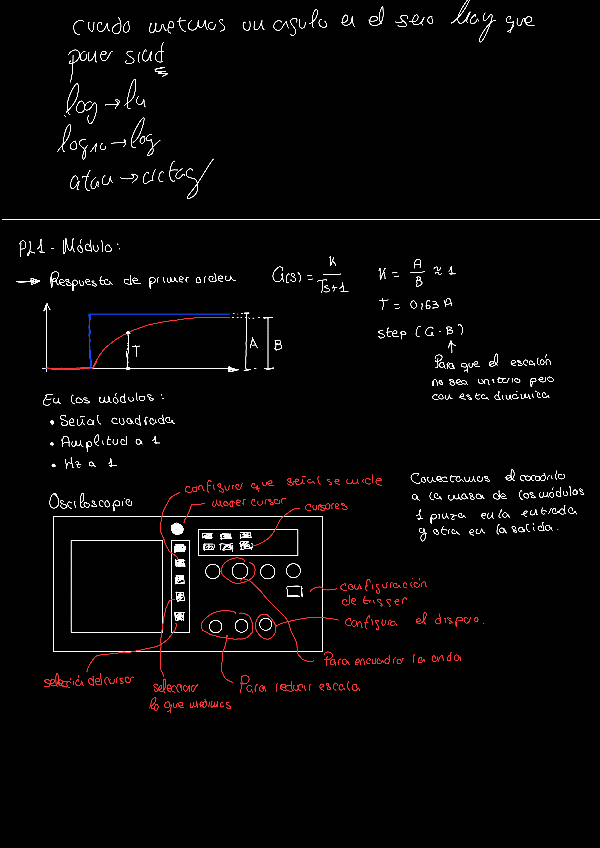 cuando metamos un angulo en el seno hay que
poner sind
log → ln
log10 → log
atan → arctag
PL1 - Módulo:
→ Respuesta de primer orden
G(s) = K / Ts+1
K = A / B ≈ 1
T = 0,63 A
step (G · B)
↑
Para que el escalón
no sea unitario pero
con esta dinámica
T
A
B
En los módulos:
• Señal cuadrada
• Amplitud a 1
• Hz a 1
Conectamos el cocodrilo
a la masa de los módulos
1 pinza en la entrada
y otra en la salida.
Osciloscopio
configurar que señal se mide
mover cursor
cursores
configuración
de trigger
configura el disparo.
Para encuadrar la onda
Para reducir escala
selección del cursor
seleccionar
lo que medimos